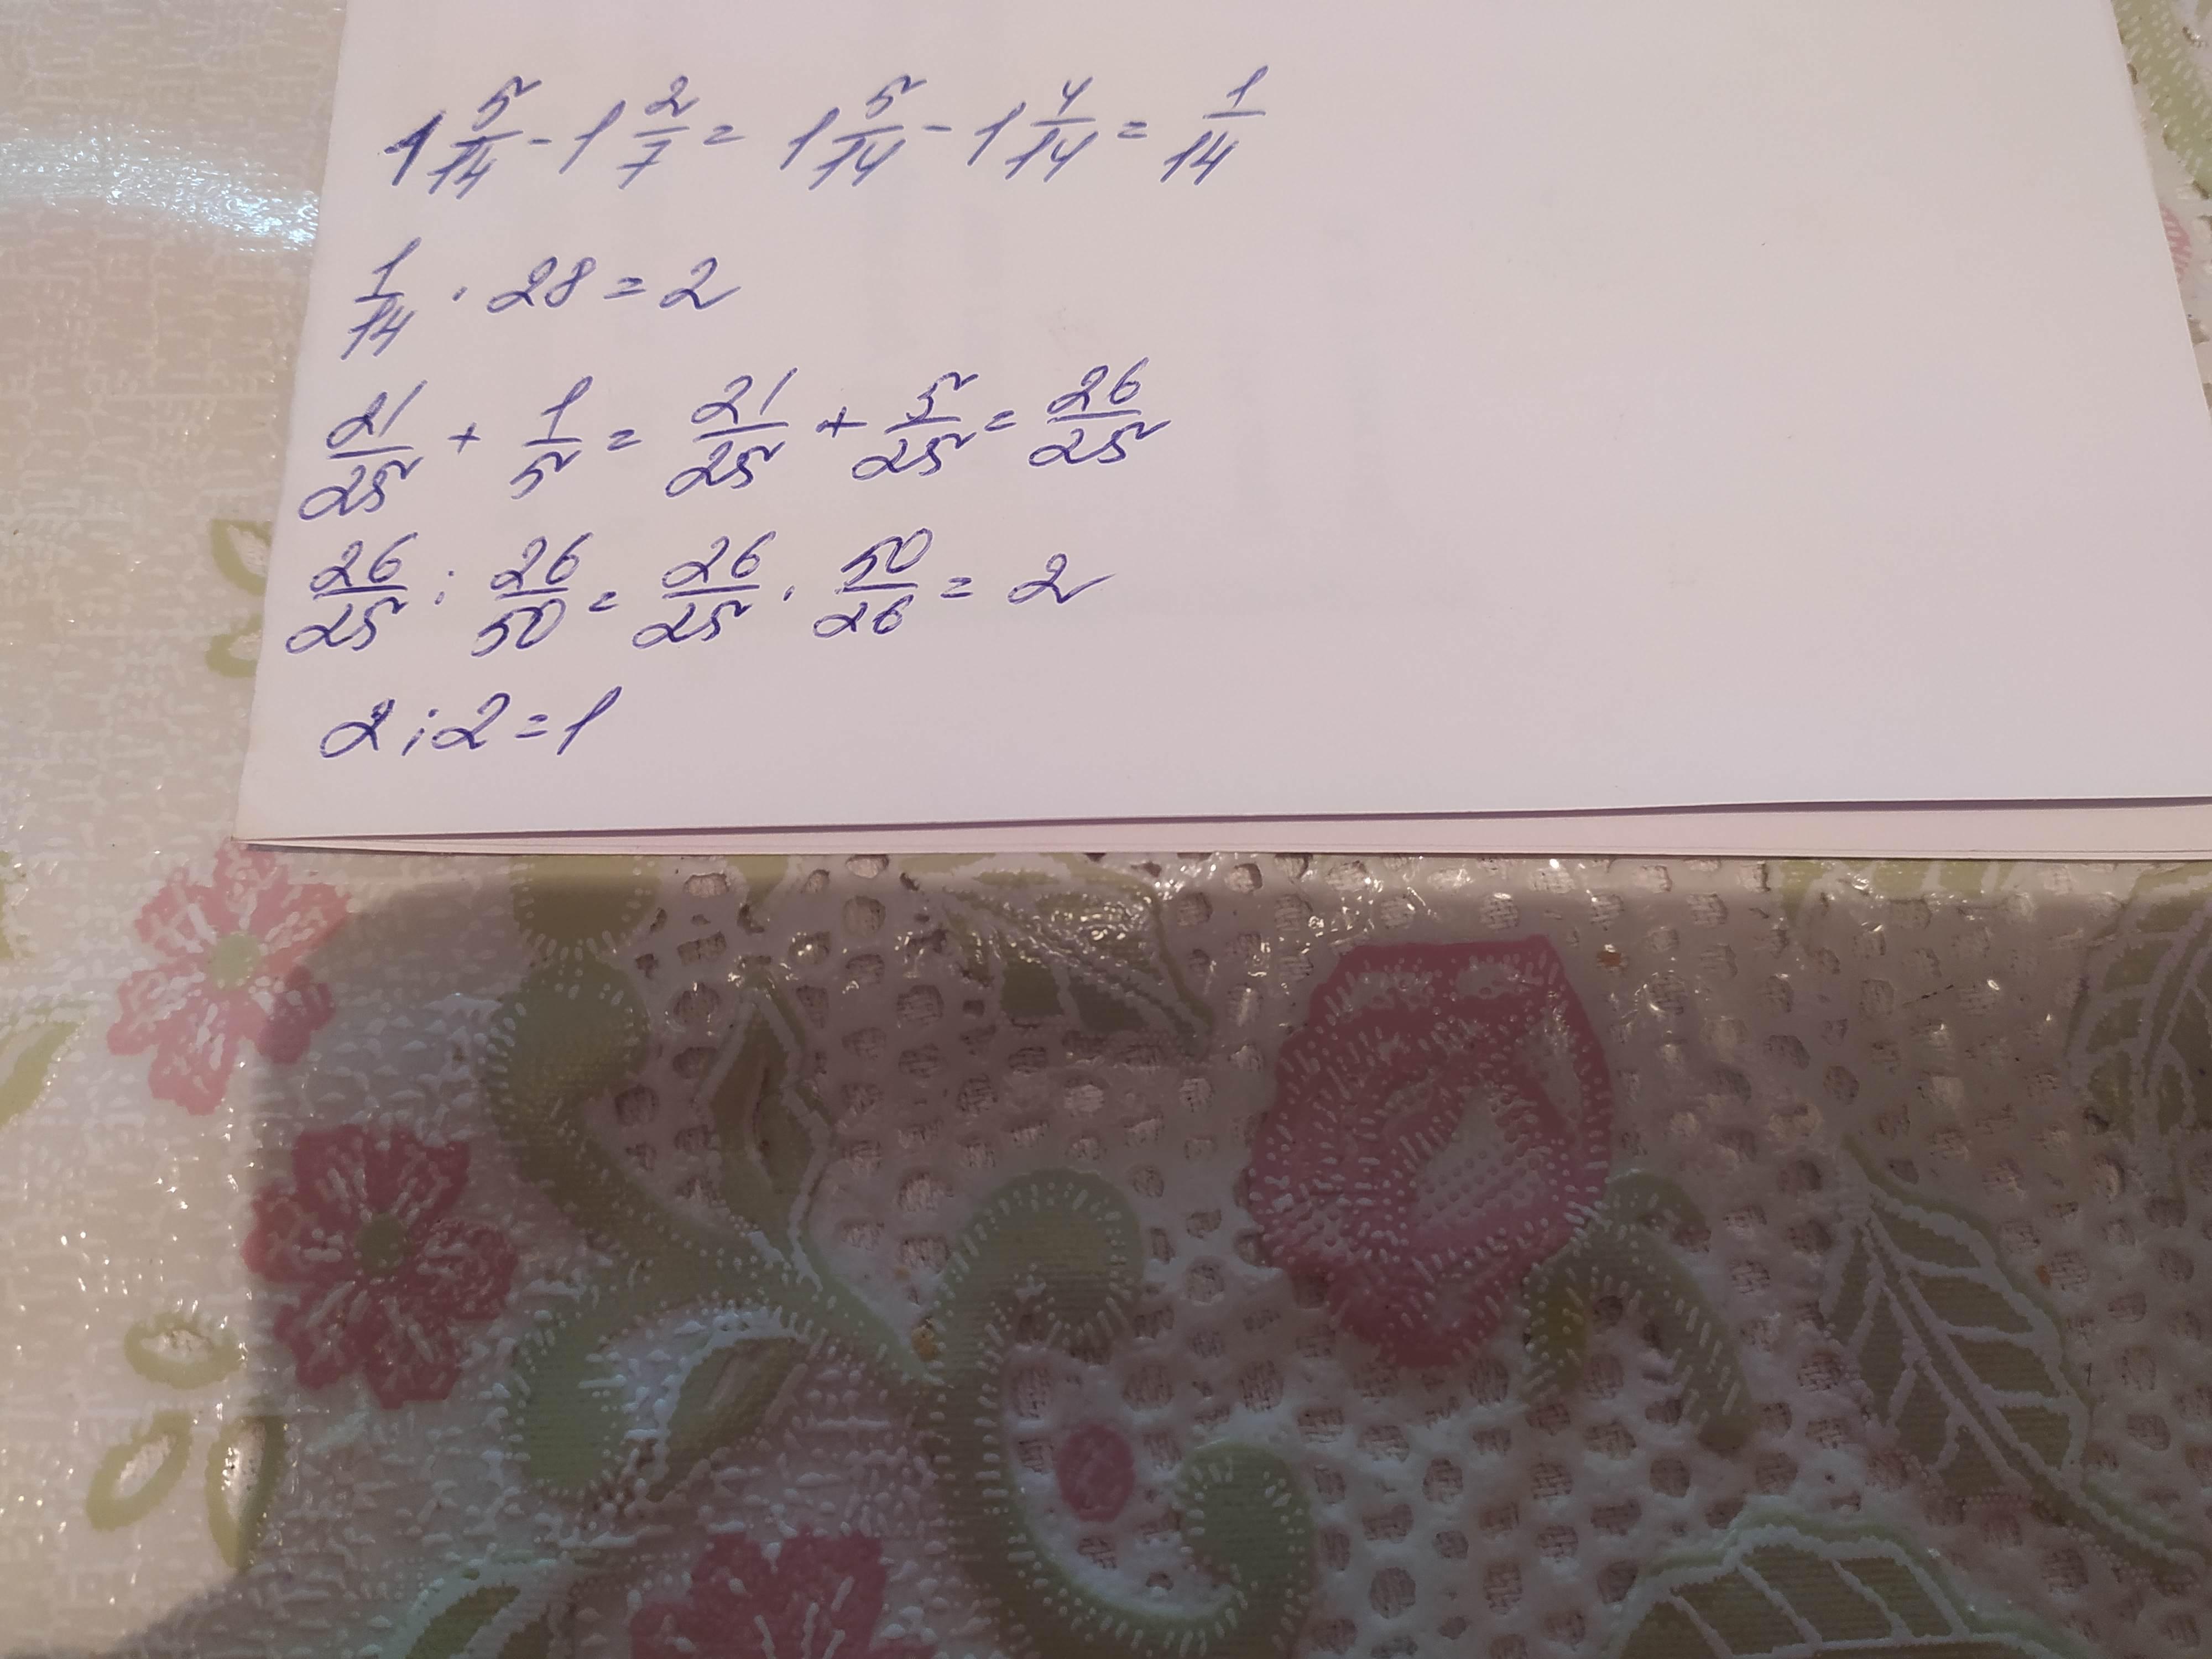 1 5/14 - 1 2/7 = 1 5/14 - 1 4/14 = 1/14
1/14 · 28 = 2
21/25 + 1/5 = 21/25 + 5/25 = 26/25
26/25 : 26/50 = 26/25 · 50/26 = 2
2 : 2 = 1